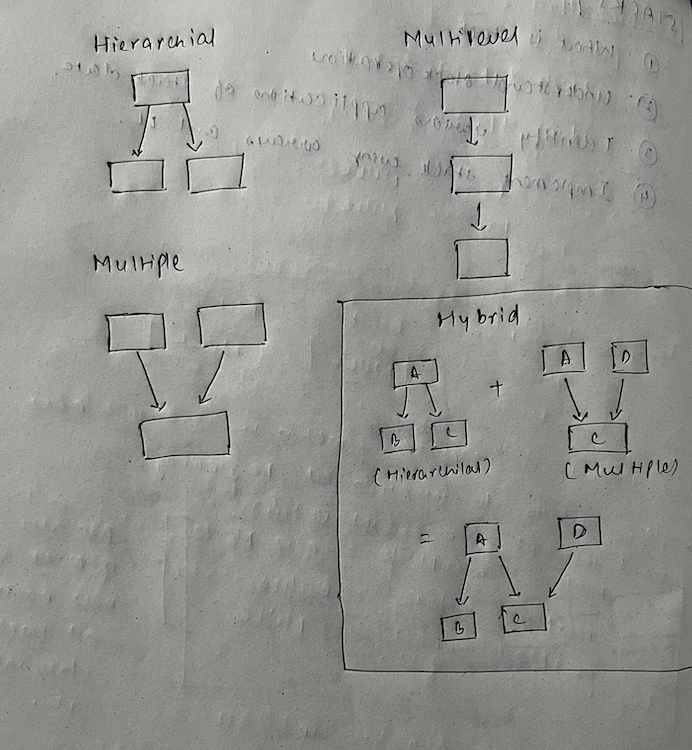 Hierarchial
Multilevel
Multiple
Hybrid
A
+
A D
B C
C
(Hierarchilal)
(Multiple)
=
A
D
B
C